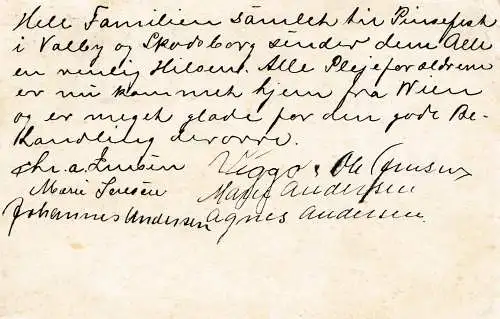 Hele Familien samlet til Pinsefest
i Valby og Skodsborg sender dem Alle
en venlig Hilsen. Alle Plejeforældrene
er nu kommet hjem fra Wien
og er meget glade for den gode Be-
handling derovre.
Chr. A. Jensen Viggo & Ole Jensen
Marie Jensen Mary Andersen
Johannes Andersen Agnes Andersen.